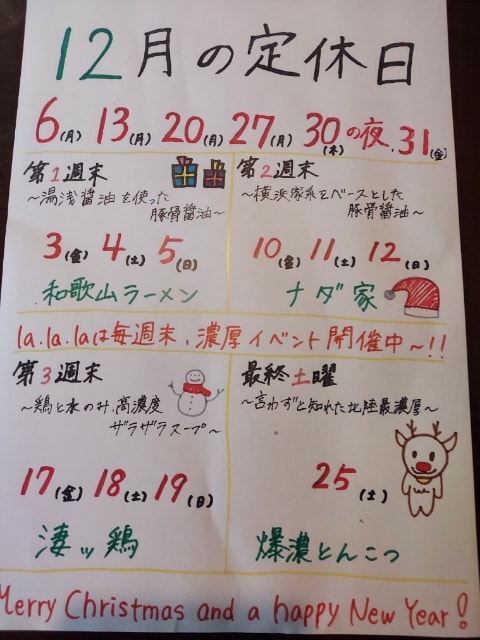 12月の定休日
6(月) 13(月) 20(月) 27(月) 30(木)の夜、31(金)
第1週末
～湯浅醤油を使った
豚骨醤油～
3(金) 4(土) 5(日)
和歌山ラーメン
第2週末
～横浜家系をベースとした
豚骨醤油～
10(金) 11(土) 12(日)
ナダ家
la.la.laは毎週末、濃厚イベント開催中～!!
第3週末
～鶏と水のみ、高濃度
ザラザラスープ～
17(金) 18(土) 19(日)
凄ッ鶏
最終土曜
～言わずと知れた北陸最濃厚～
25(土)
爆濃とんこつ
Merry Christmas and a happy New Year!